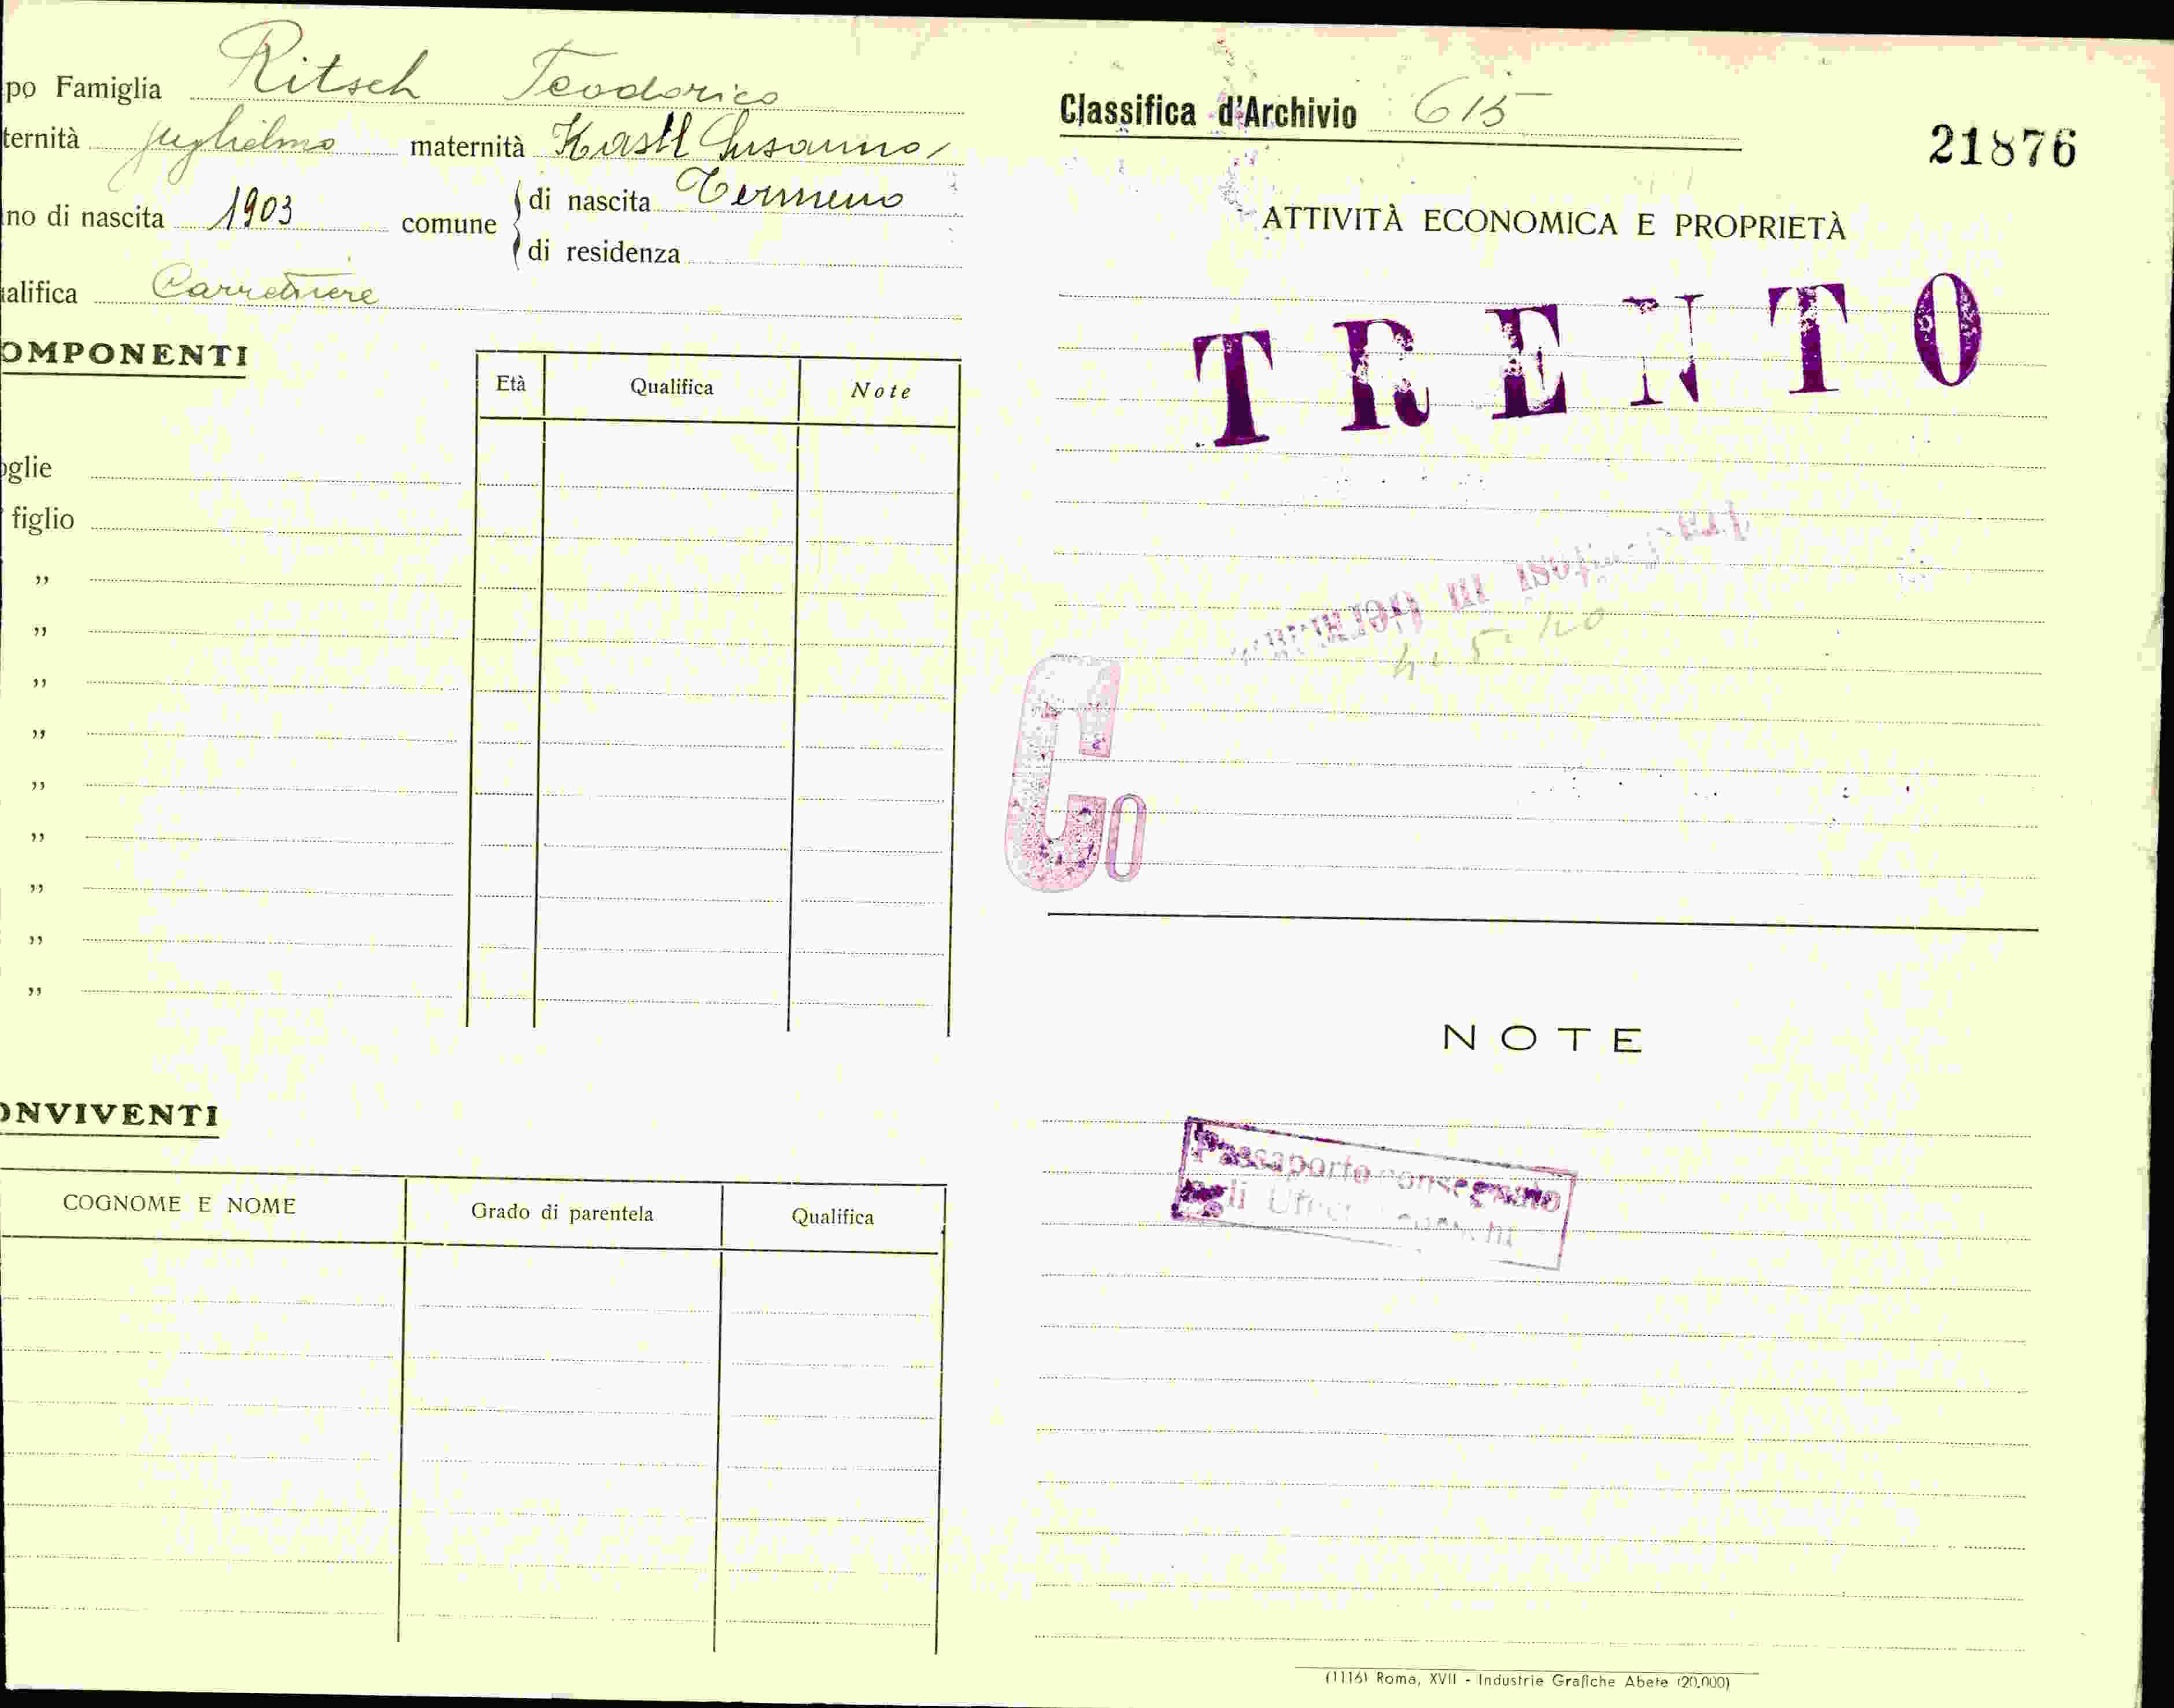 po Famiglia Ritsch Teodorico
ternità Guglielmo maternità Kastl Susanna
no di nascita 1903 comune di nascita Termeno
di residenza
alifica Carrettiere
OMPONENTI
Età Qualifica Note
oglie
figlio
"
"
"
"
"
"
"
"
"
ONVIVENTI
COGNOME E NOME Grado di parentela Qualifica
Classifica d'Archivio 615
21876
ATTIVITÀ ECONOMICA E PROPRIETÀ
TRENTO
in
Co
NOTE
Passaporto consegnato
agli
(1116) Roma, XVII - Industrie Grafiche Abete (20.000)